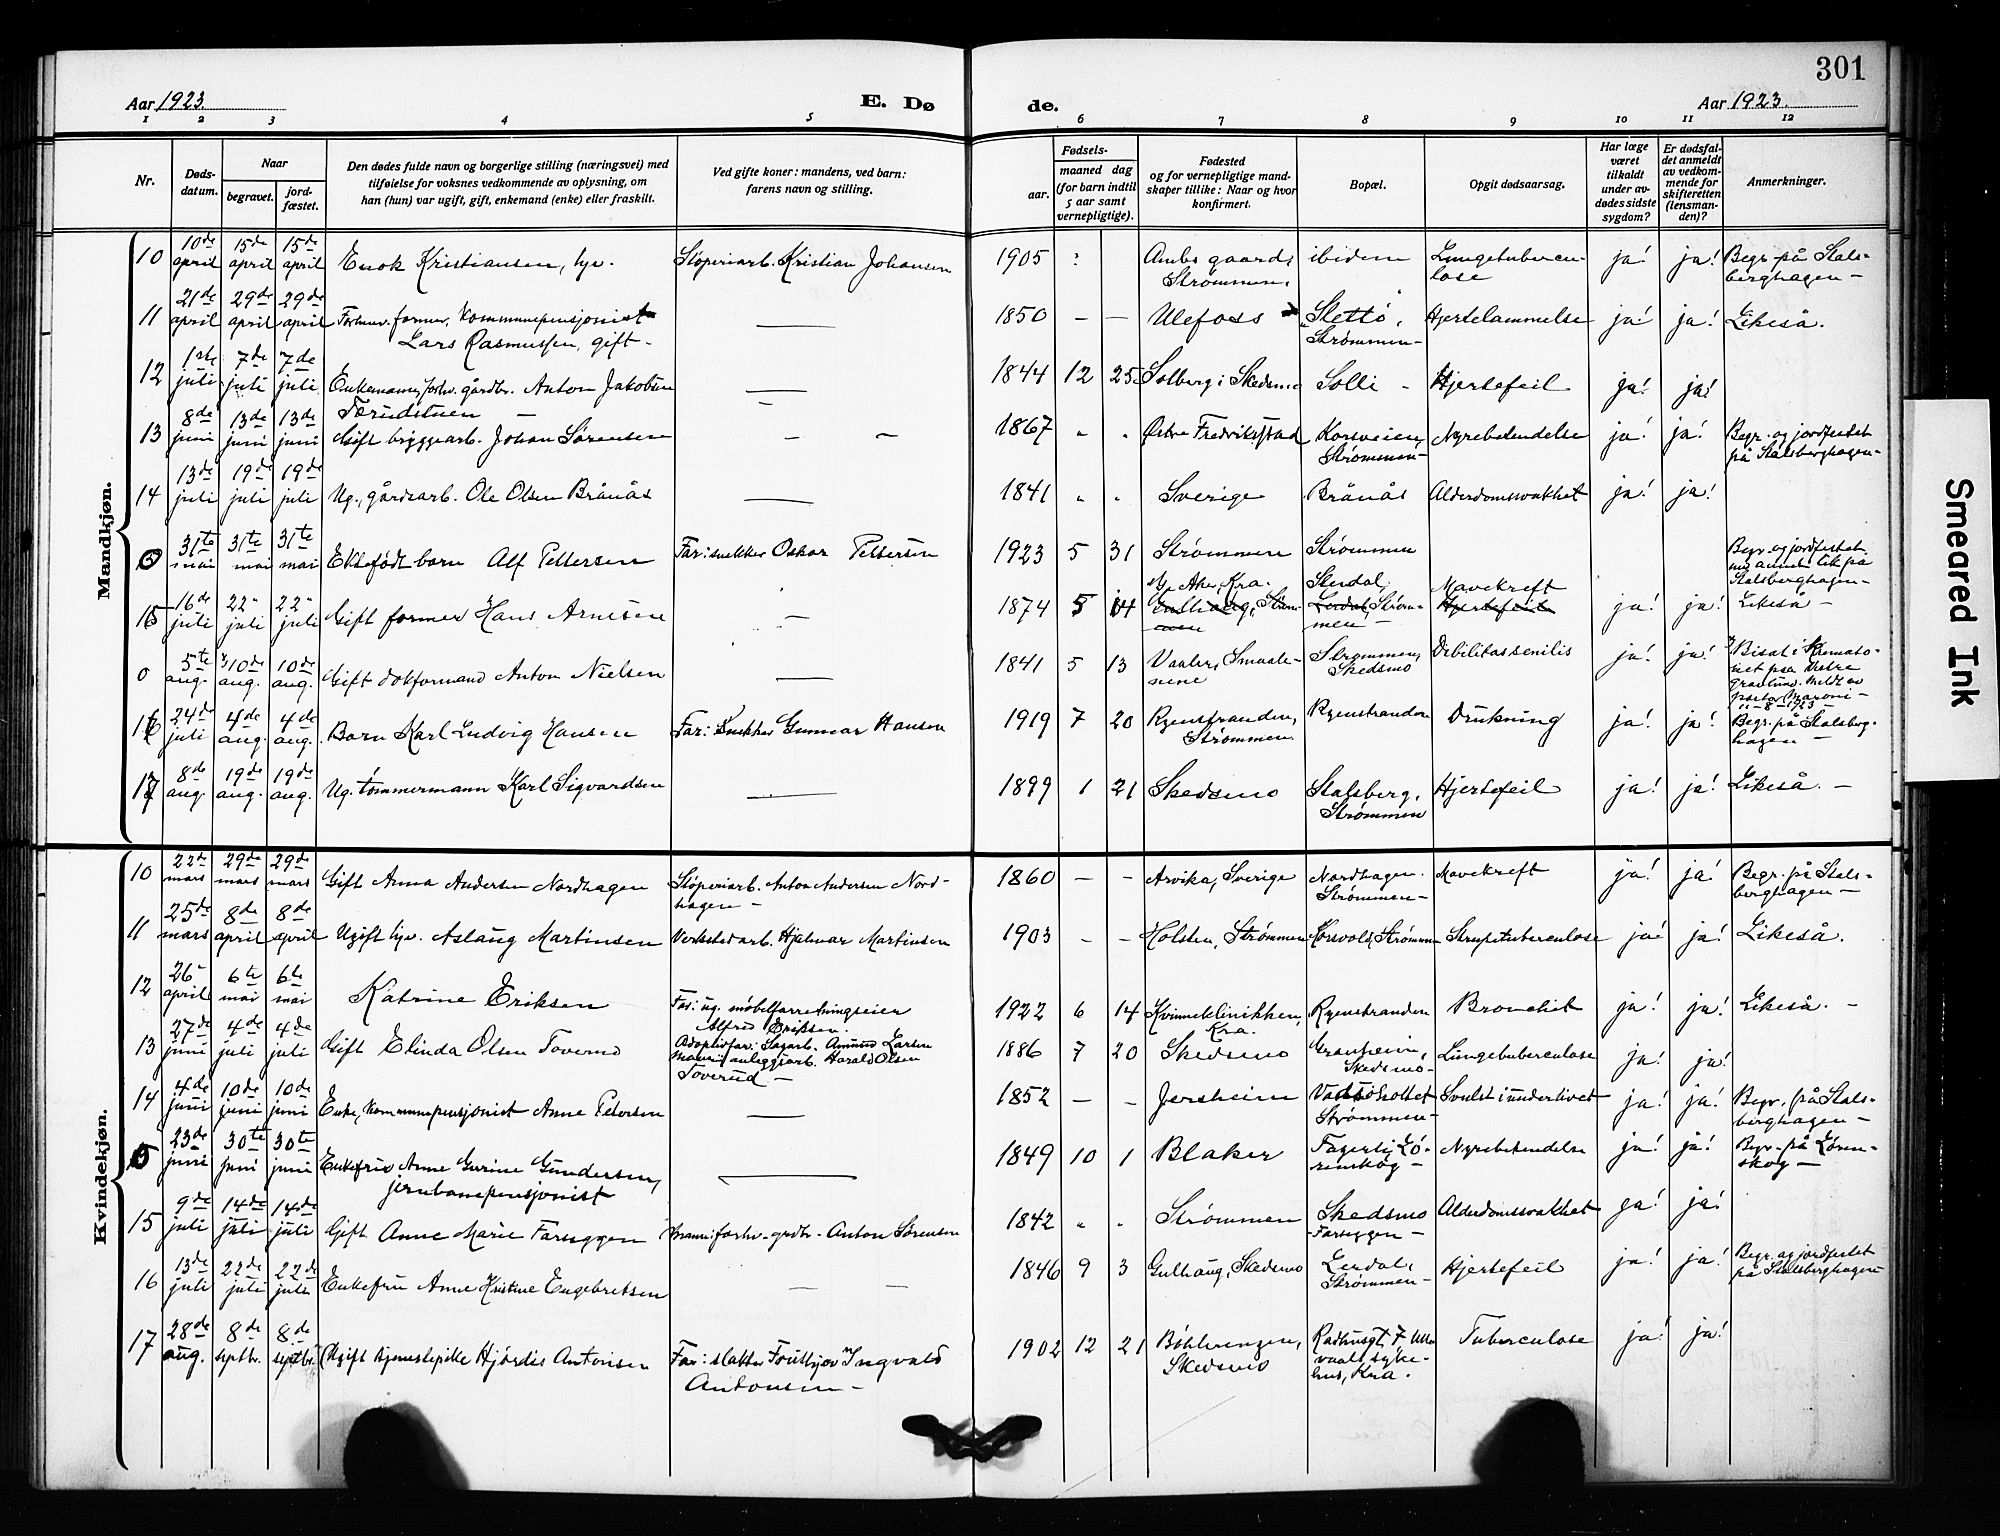 301
Aar 1923. E. Dø de. Aar 1923.
1 2 3 4 5 6 7 8 9 10 11 12
Nr. Døds-datum. Naar begravet. jord-fæstet. Den dødes fulde navn og borgerlige stilling (næringsvei) med tilføielse for voksnes vedkommende av oplysning, om han (hun) var ugift, gift, enkemand (enke) eller fraskilt. Ved gifte koner: mandens, ved barn: farens navn og stilling. Fødsels- aar. maaned dag (for barn indtil 5 aar samt vernepligtige). Fødested og for vernepligtige mand-skaper tillike: Naar og hvor konfirmert. Bopæl. Opgit dødsaarsag. Har læge været tilkaldt under av-dødes sidste sygdom? Er dødsfal-det anmeldt av vedkom-mende for skifteretten (lensman-den)? Anmerkninger.
Mandkjøn.
10 10de april 15de april 15de april Enok Kristiansen, hjv. Støperiarb. Kristian Johansen 1905 ? gaard, Strømmen. ibidem Lungetubercu-lose ja! ja! Begr. på Stals-berghagen -
11 21de april 29de april 29de april former, Kommunepensjonist Lars Rasmussen, gift - — 1850 — — Ulefoss "Slettô", Strømmen - Hjertelammelse ja! ja! Likeså.
12 1ste juli 7de juli 7de juli Enkemann, forhv. gårdbr. Anton Jakobsen Færudstuen - — 1844 12 25 Solberg i Skedsmo Solli - Hjertefeil ja! ja!
13 8de juni 13de juni 13de juni Gift bryggearb. Johan Sørensen - - 1867 " " Østre Fredrikstad Korsveien, Strømmen - Nyrebetendelse ja! ja! Begr. og jordfestet på Stalsberghagen -
14 13de juli 19de juli 19de juli Ug., gårdsarb. Ole Olsen Brånås — 1841 " " Sverige Brånås Alderdomssvakhet ja! ja!
0 31te mai 31te mai 31te mai Ektefødt barn Alf Pettersen Far: snekker Oskar Pettersen 1923 5 31 Strømmen Strømmen Begr. og jordfestet på Stalsberghagen -
15 16de juli 22" juli 22" juli Gift former Hans Arnesen - 1874 5 14 V. Aker, Kra. Strøm-men Lerdal, Strøm-men - Mavekreft Hjertefeil ja! ja! Likeså -
0 5te aug. 10de aug. 10de aug. Gift dokformand Anton Nielsen — 1841 5 13 Vaaler, Smaale-nene Strømmen, Skedsmo Debilitas senilis ja! ja! Bisat i Kremato-riet paa Vestre gravlund. Meldt av pastor Maroni - 11-8-1923 -
16 24de juli 4de aug. 4de aug. Barn Karl Ludvig Hansen Far: Snekker Gunnar Hansen 1919 7 20 Ryenstranden, Strømmen. Ryenstranden Drukning ja! ja! Begr. på Stalsberg-hagen -
17 8de aug. 19de aug. 19de aug. Ug. tømmermann Karl Sigvardsen — 1899 1 21 Skedsmo Stalsberg, Strømmen Hjertefeil ja! ja! Likeså. -
Kvindekjøn.
10 22de mars 29de mars 29de mars Gift Anna Andersen Nordhagen Støperiarb. Anton Andersen Nord-hagen - 1860 - - Arvika, Sverige Nordhagen. Strømmen - Mavekreft ja! ja! Begr. på Stals-berghagen -
11 25de mars 8de april 8de april Ugift hjv. Aslaug Martinsen Verkstedarb. Hjalmar Martinsen 1903 - - Holsten, Strømmen Korsvold, Strømmen Strupetuberculose ja! ja! Likeså.
12 26" april 6te mai 6te mai Katrine Eriksen Far: ug. møbelforretningseier Alfred Eriksen. Adoptivfar: Sagarb. Amund Larsen 1922 6 14 Kvinneklinikken, Kra. Ryenstranden Bronchit ja! ja! Likeså. -
13 27de juni 4de juli 4de juli Gift Elinda Olsen Toverud Mann: anleggsarb. Harald Olsen Toverud - 1886 7 20 Skedsmo Granheim, Skedsmo - Lungetuberculose ja! ja!
14 4de juni 10de juni 10de juni Enke, Kommunepensjonist Anne Petersen — 1852 - - Jersheim Strømmen - Svulst i underlivet ja! ja! Begr. på Stals-berghagen -
0 23de juni 30te juni 30te juni Enkefru Anne Gurine Gundersen, jernbanepensjonist — 1849 10 1 Blaker Fagerli, Lø-renskog - Nyrebetendelse ja! ja! Begr. på Løren-skog -
15 9de juli 14de juli 14de juli Gift Anne Marie Farseggen Mann: forhv. grdbr. Anton Sørensen 1842 " " Strømmen Skedsmo Farseggen - Alderdomssvakhet ja! ja!
16 13de juli 22de juli 22de juli Enkefru Anne Kristine Engebretsen - - 1846 9 3 Gulhaug, Skedsmo Lerdal, Strømmen - Hjertefeil ja! ja! Begr. og jordfestet på Stalsberghagen -
17 28de aug. 8de septbr. 8de septbr. Ugift tjenestepike Hjørdis Antonsen Far: slakter Fritthjov Ingvald Antonsen - 1902 12 21 Böhlerengen, Skedsmo Raadhusgt 7, Ulle-vaals syke-hus, Kra. Tuberculose ja! ja!
Smeared Ink